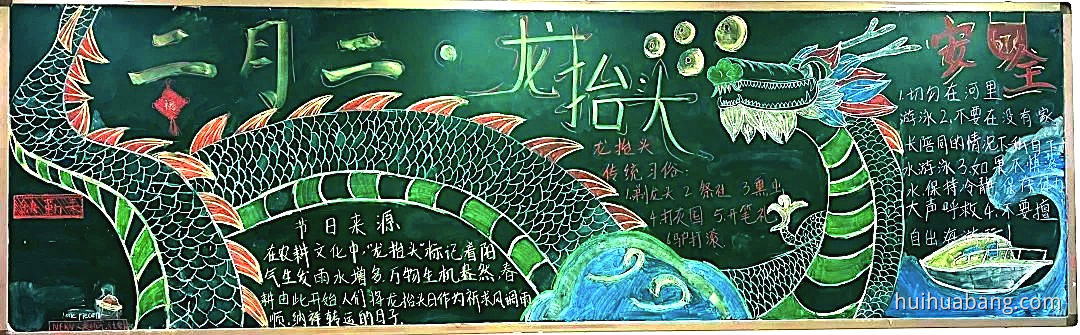 二月二·龙抬头
安全
1.切勿在河里
游泳2.不要在没有家
长陪同的情况下私自下
水游泳3.如果不慎
水保持冷静
大声呼救4.不要擅
自出海游玩!
龙抬头
传统习俗:
1.剃龙头 2.祭社 3.熏虫
4.打灰囤 5.开笔礼
节日来源
在农耕文化中,“龙抬头”标记着阳
气生发雨水增多万物生机盎然,春
耕由此开始人们将龙抬头日作为祈求风调雨
顺、纳祥转运的日子。
huihuabang.com